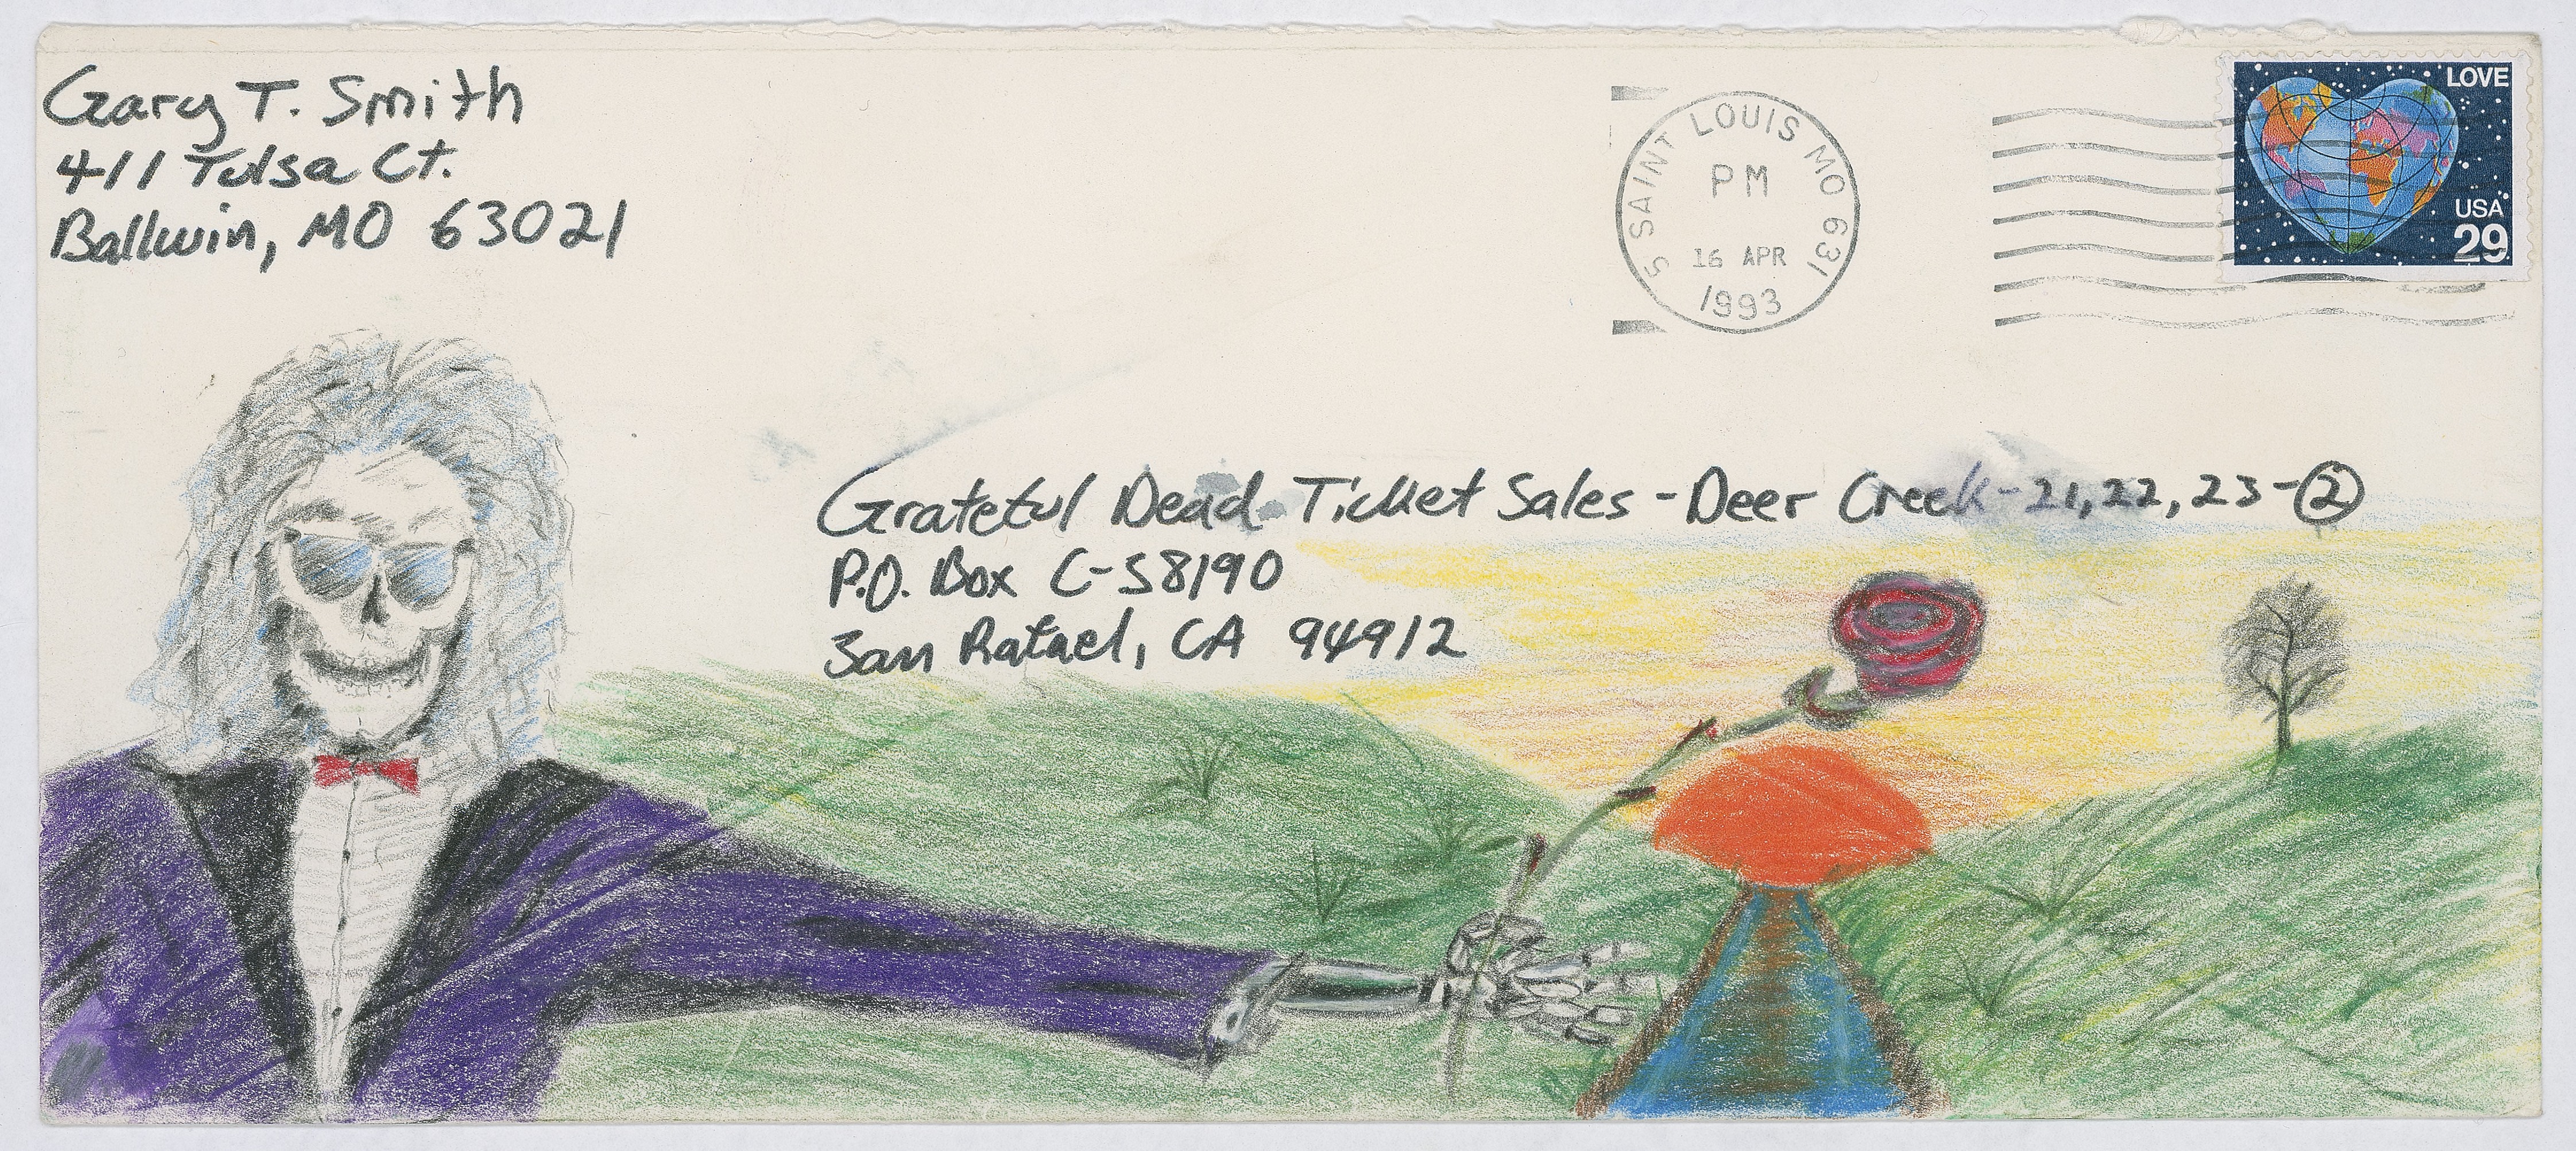 Gary T. Smith
411 Tulsa Ct.
Ballwin, MO 63021
S SAINT LOUIS MO 631
PM
16 APR
1993
LOVE
USA
29
Grateful Dead Ticket Sales - Deer Creek - 21, 22, 23 - ②
P.O. Box C-S8190
San Rafael, CA 94912